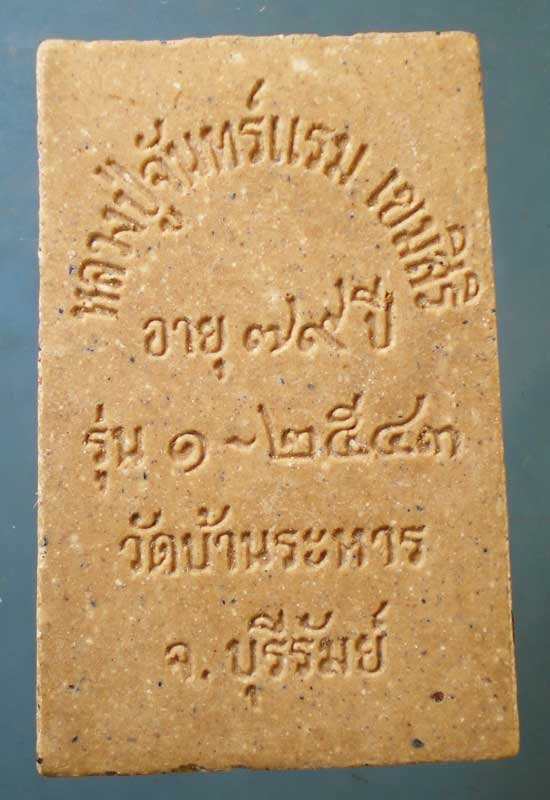 หลวงปู่จันทร์แรม เขมสิริ
อายุ ๗๙ ปี
รุ่น ๑~๒๕๔๓
วัดบ้านระหาร
จ. บุรีรัมย์